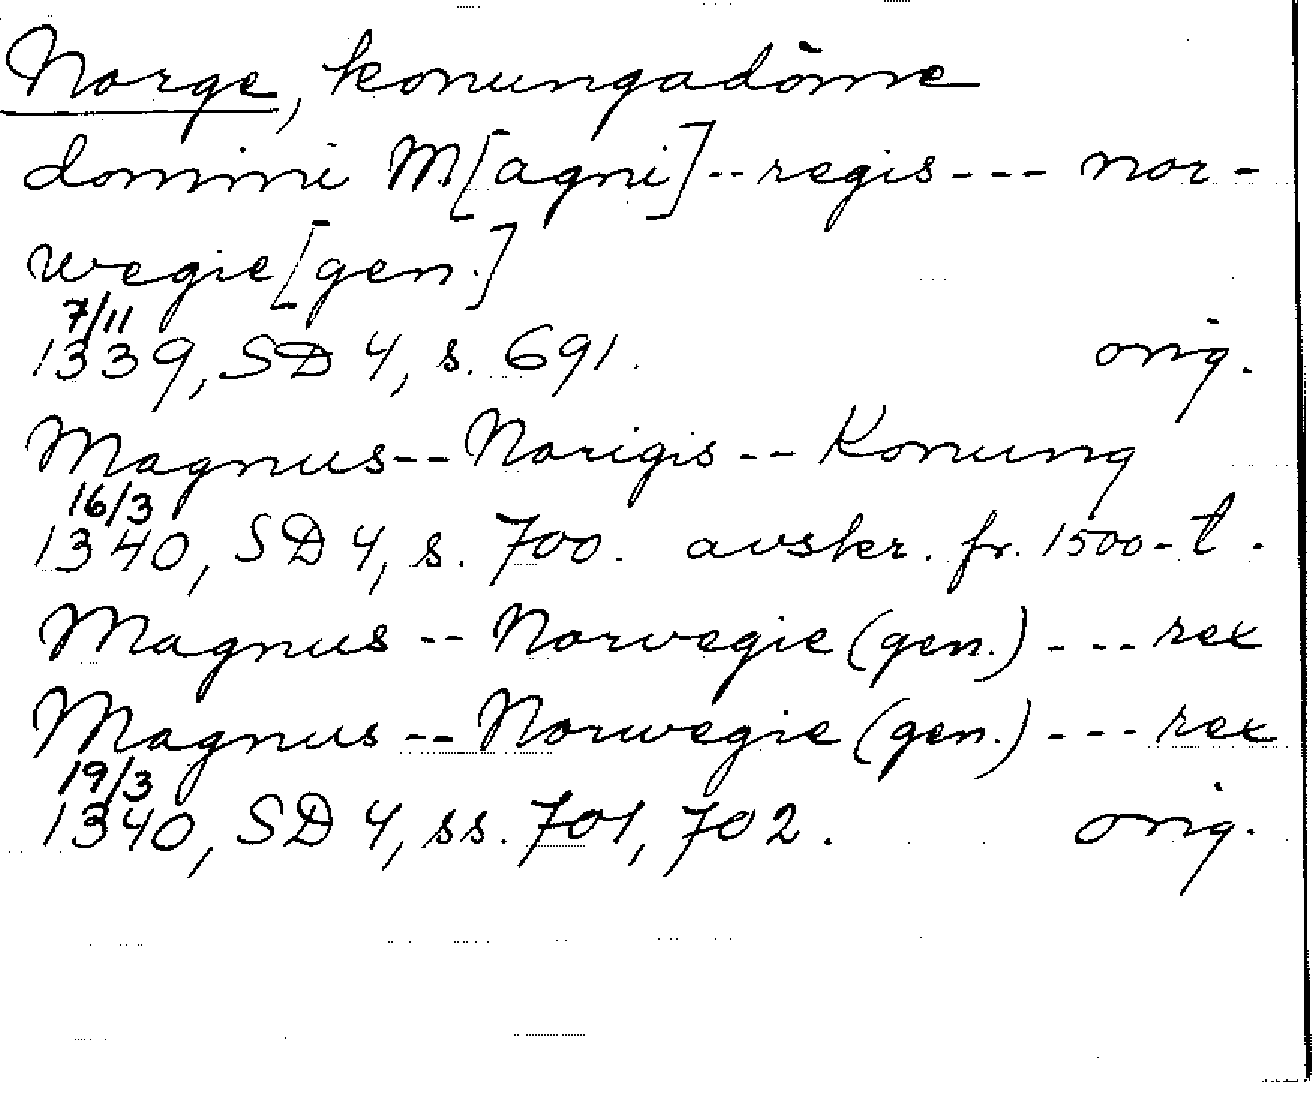 Norge, konungadöme
domini M[agni]--regis--- nor-
wegie[gen.]
7/11
1339, SD 4, s. 691. orig.
Magnus--Norigis--Konung
16/3
1340, SD 4, s. 700. avskr. fr. 1500-t.
Magnus--Norwegie(gen.)---rex
Magnus--Norwegie(gen.)---rex
19/3
1340, SD 4, ss. 701, 702. orig.